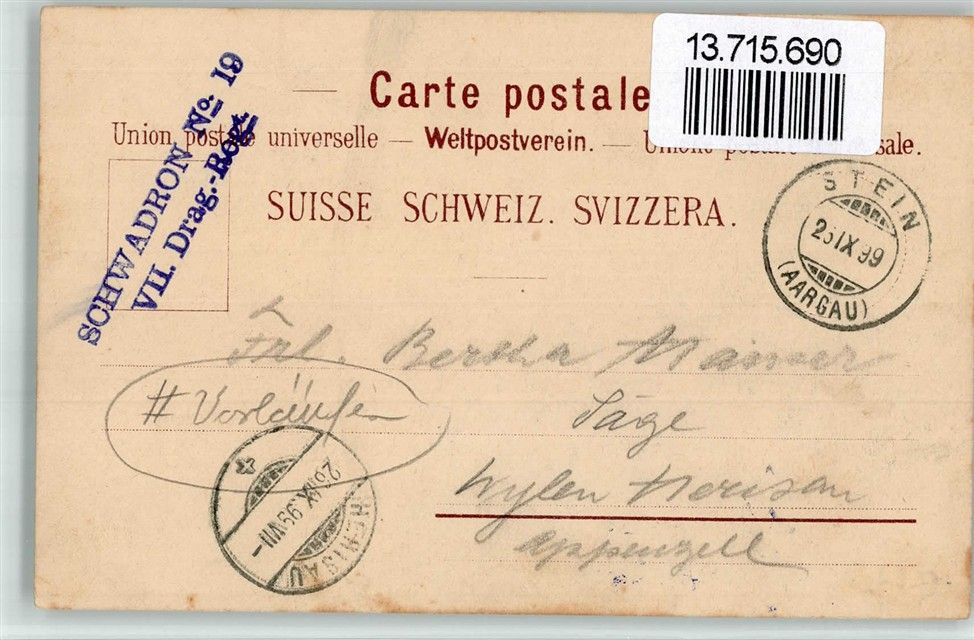 13.715.690
Carte postale
Union postale universelle — Weltpostverein. — Unione postale sale.
SUISSE SCHWEIZ. SVIZZERA.
SCHWADRON No. 19
VII. Drag.-Regt.
STEIN
IX 99
(AARGAU)
Frl. Bertha
# Vorläufer
Säge
Wylen Herisau
Appenzell
IX.99 VII-
HERISAU